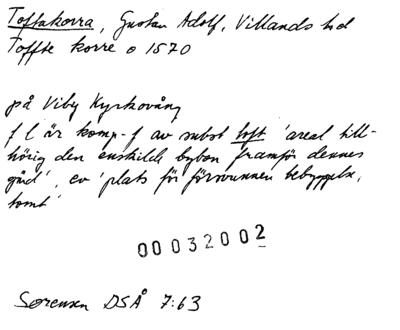 Toftakorra, Gustav Adolf, Villands hd
Toffte korre o 1570
på Viby Kyrkovång
f l är komp-f av subst toft 'areal till-
hörig den enskilde bybon framför dennes
gård', ev 'plats för försvunnen bebyggelse,
tomt'
00032002
Sørensen DSÅ 7:63